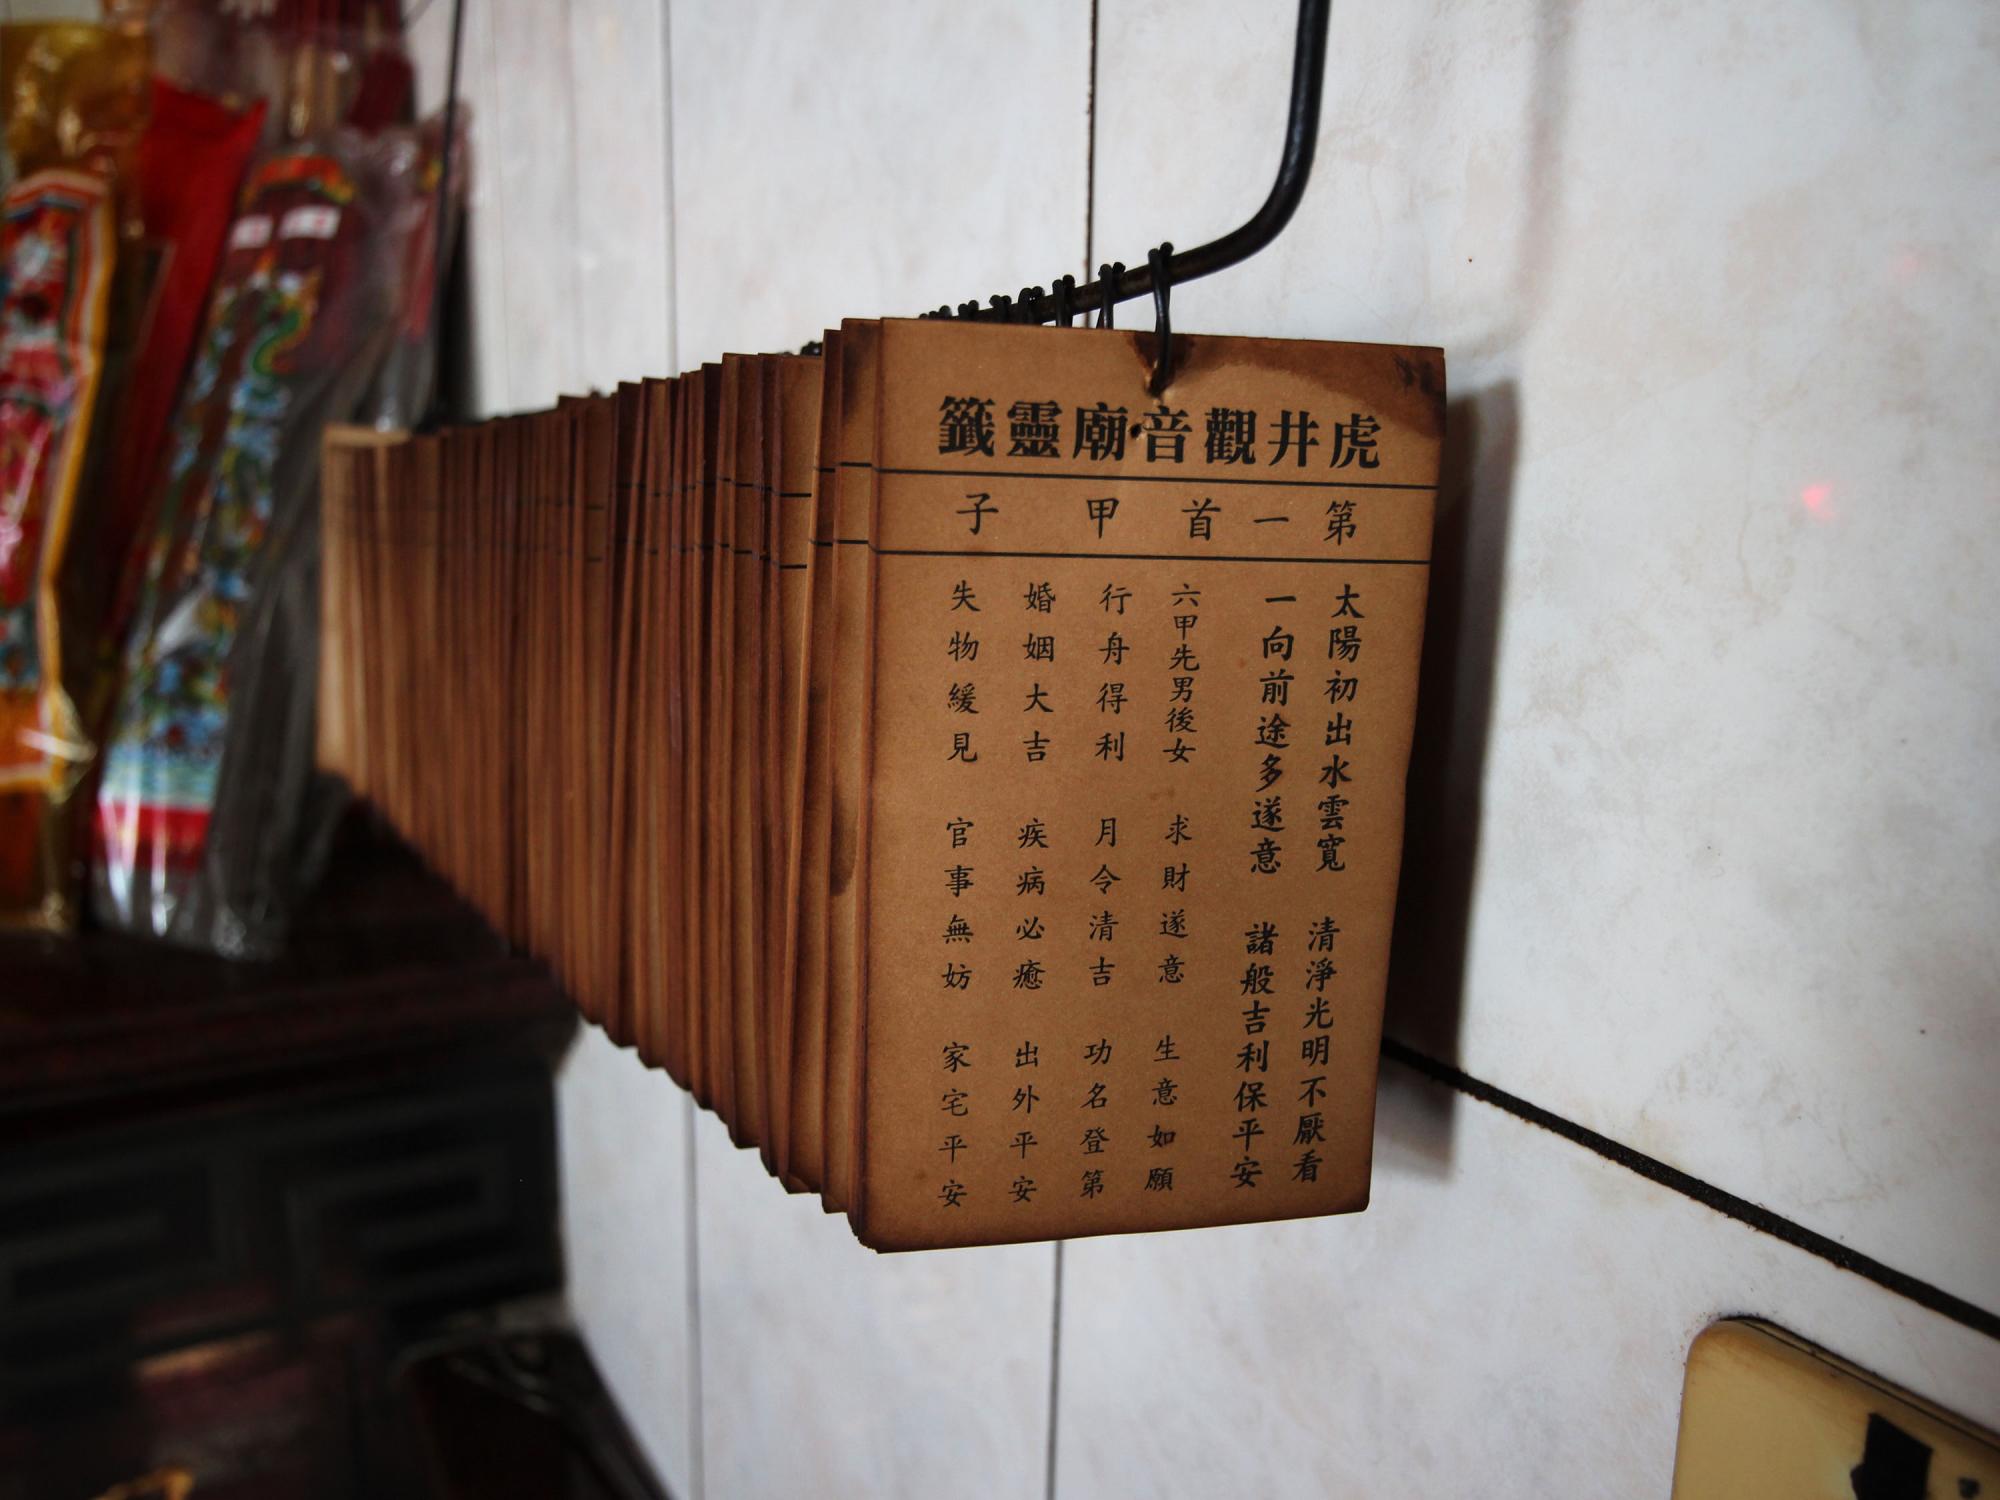 虎井觀音廟靈籤
第一首 甲 子
太陽初出水雲寬 清淨光明不厭看
一向前途多遂意 諸般吉利保平安
六甲先男後女 求財遂意 生意如願
行舟得利 月令清吉 功名登第
婚姻大吉 疾病必癒 出外平安
失物緩見 官事無妨 家宅平安